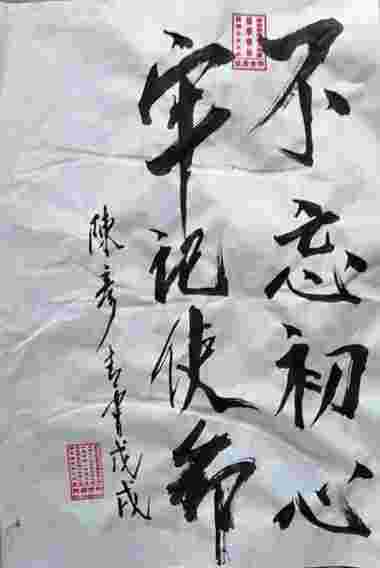 不忘初心
牢记使命
陳彥青書戊戌